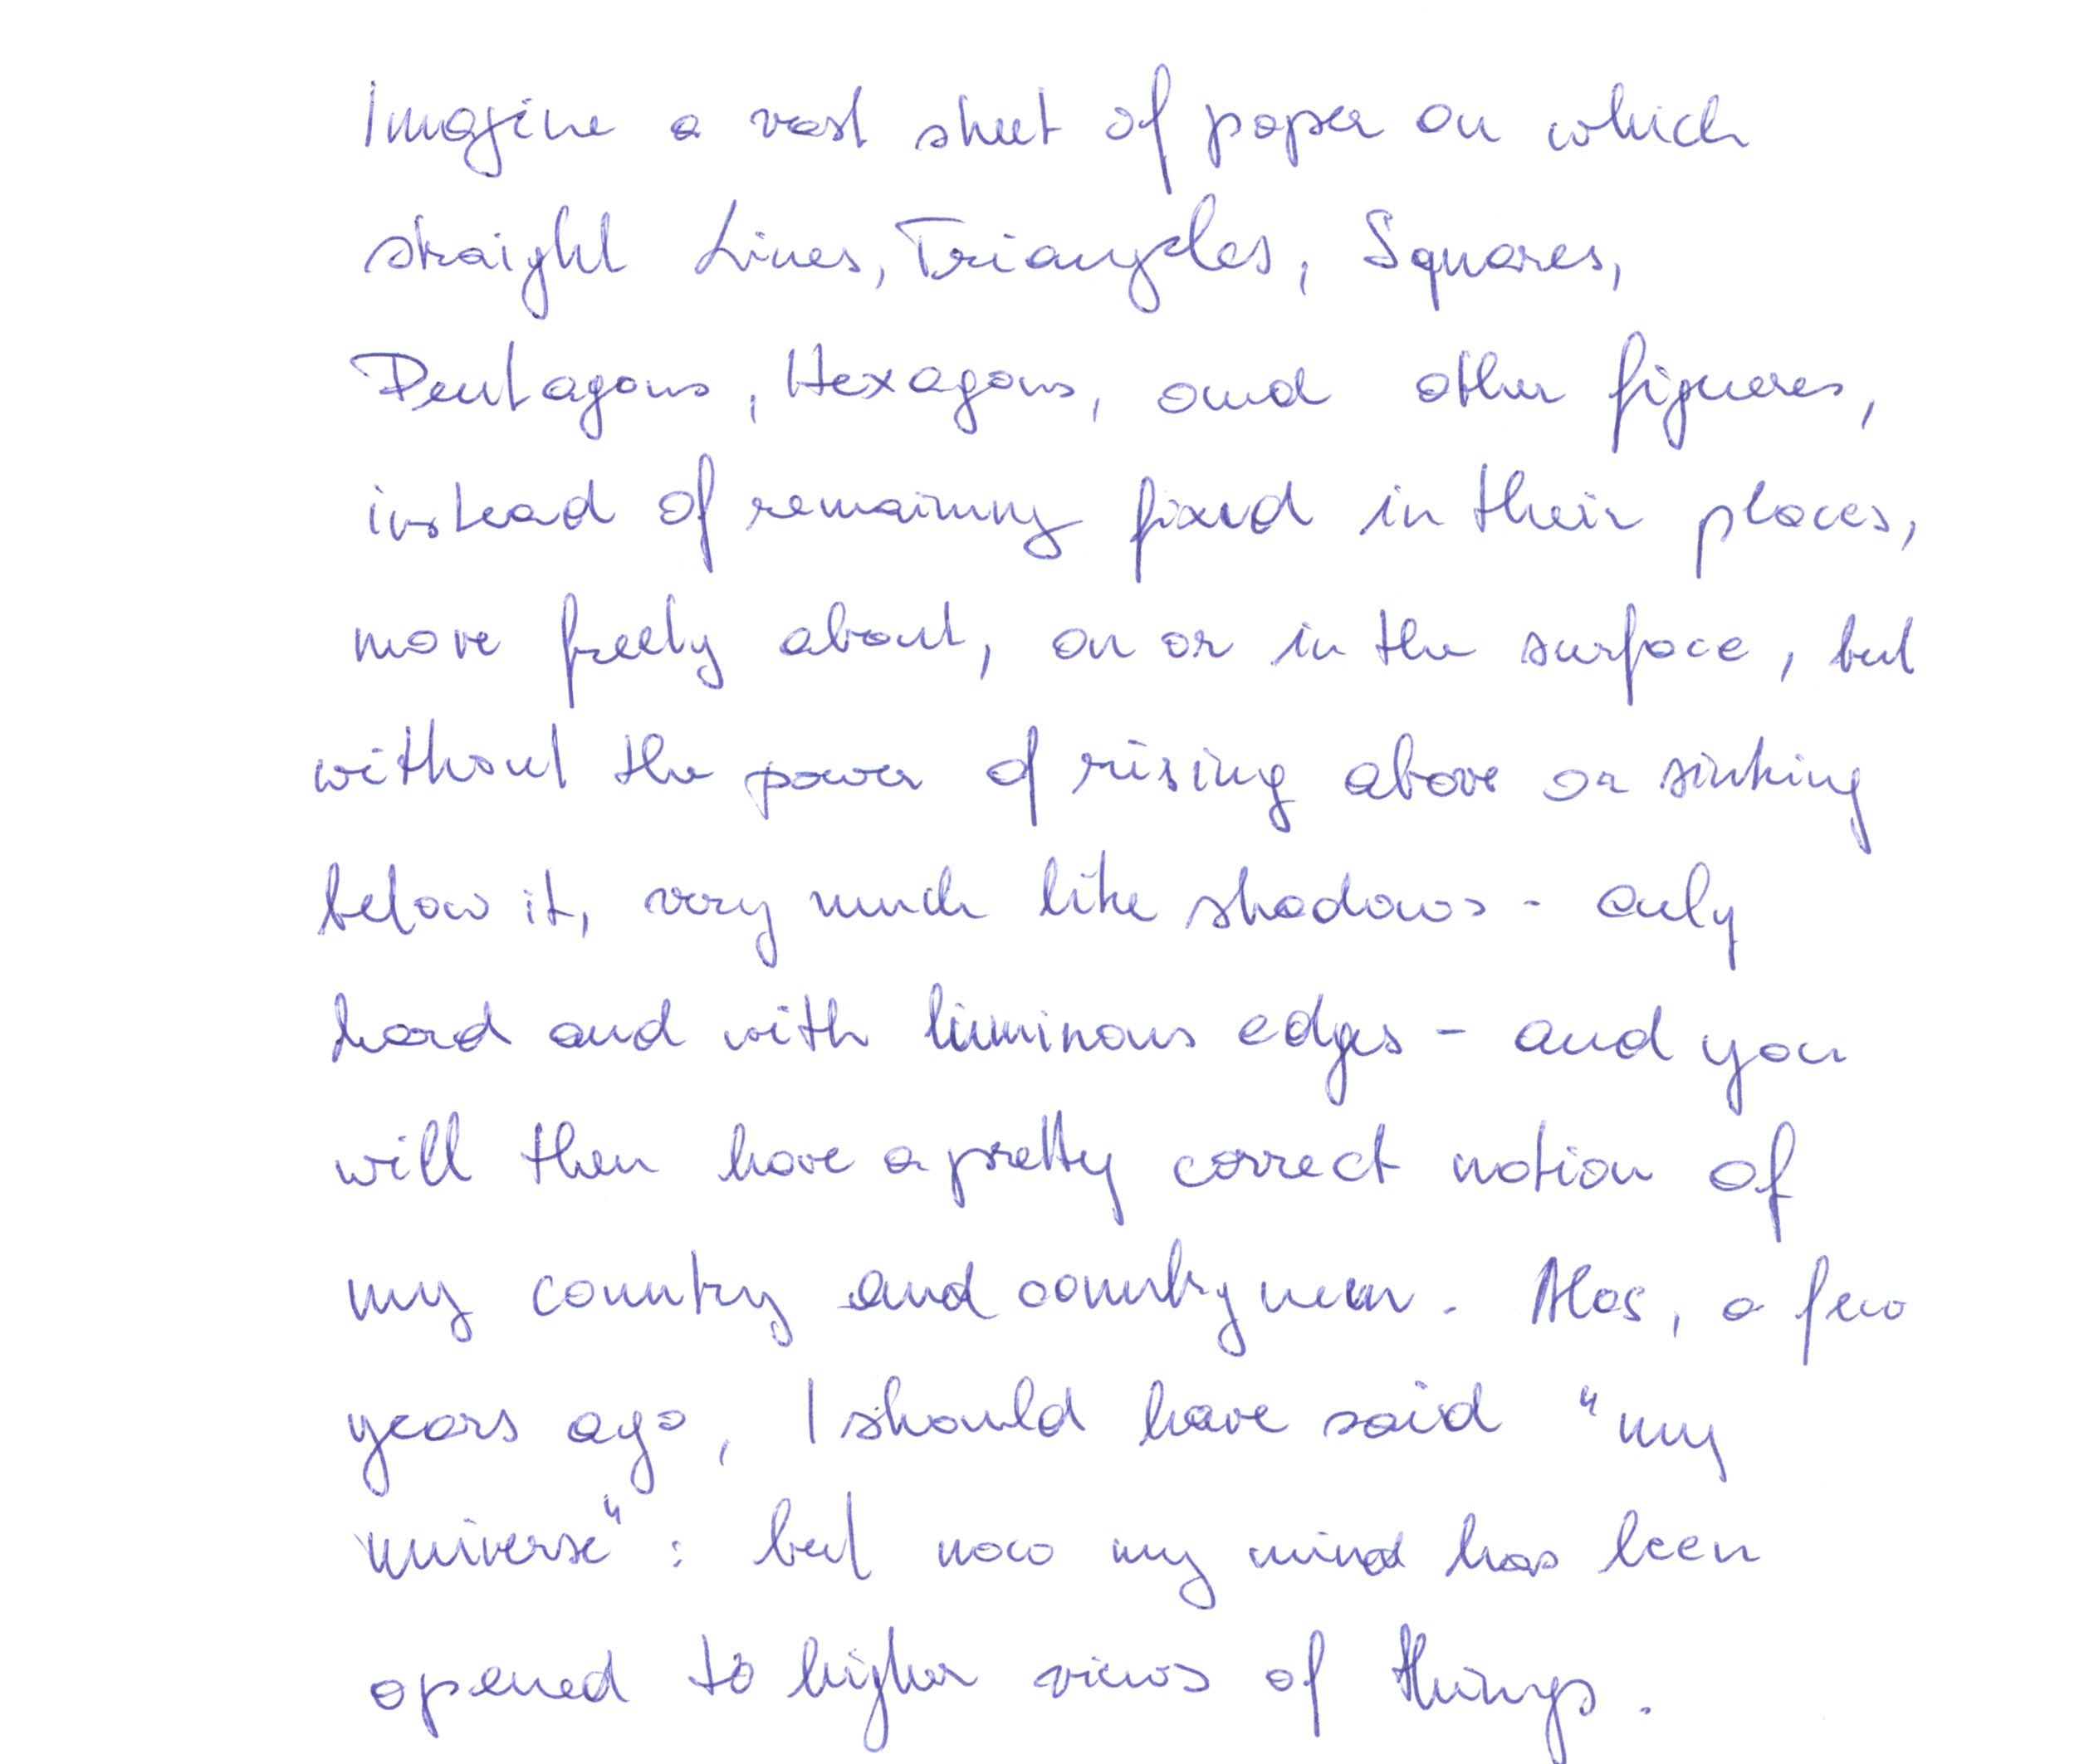 Imagine a vast sheet of paper on which
straight Lines, Triangles, Squares,
Pentagons, Hexagons, and other figures,
instead of remaining fixed in their places,
move freely about, on or in the surface, but
without the power of rising above or sinking
below it, very much like shadows - only
hard and with luminous edges - and you
will then have a pretty correct notion of
my country and countrymen. Alas, a few
years ago, I should have said "my
universe": but now my mind has been
opened to higher views of things.